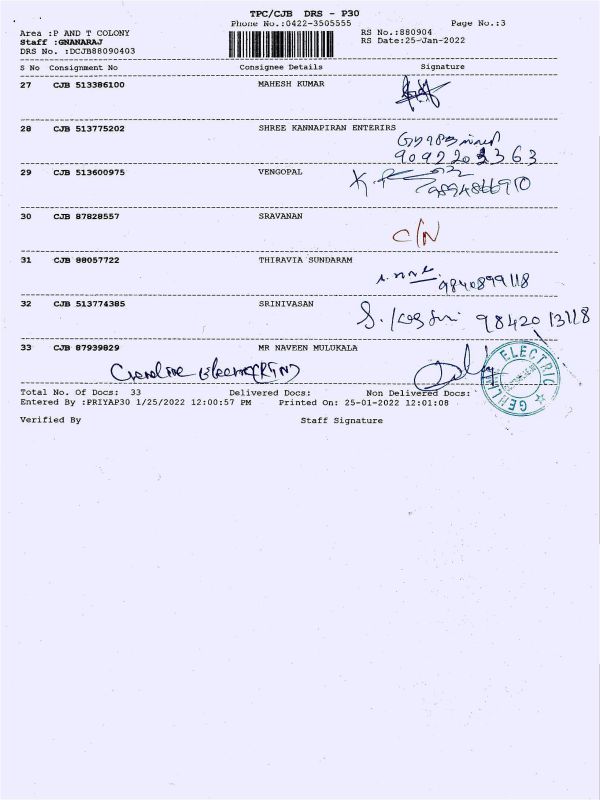 TPC/CJB DRS - P30
Phone No.:0422-3505555 Page No.:3
Area :P AND T COLONY RS No.:880904
Staff :GNANARAJ RS Date:25-Jan-2022
DRS No. :DCJB88090403
S No Consignment No Consignee Details Signature
27 CJB 513386100 MAHESH KUMAR
28 CJB 513775202 SHREE KANNAPIRAN ENTERIRS
9092202363
29 CJB 513600975 VENGOPAL
9894866910
30 CJB 87828557 SRAVANAN
C/N
31 CJB 88057722 THIRAVIA SUNDARAM
9840899118
32 CJB 513774385 SRINIVASAN
S. 98420 13118
33 CJB 87939829 MR NAVEEN MULUKALA
ELECTRIC
Total No. Of Docs: 33 Delivered Docs: Non Delivered Docs:
Entered By :PRIYAP30 1/25/2022 12:00:57 PM Printed On: 25-01-2022 12:01:08
Verified By Staff Signature